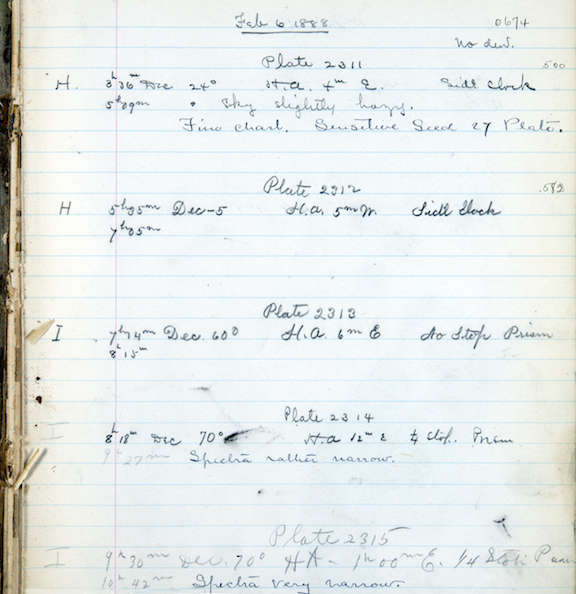 Feb 6 1888 0674
No dew.
Plate 2311 500
H. 3h 36m Dec 24° H.A. 4m E. Sidl Clock
5h 09m Sky slightly hazy.
Fine chart. Sensitive Seed 27 Plate.
Plate 2312 .582
H 5h 35m Dec -5 H.A. 5m W. Sidl Clock
7h 05m
Plate 2313
I 7h 14m Dec. 60° H.A. 6m E No Stop Prism
8h 15m
Plate 2314
I 8h 18m Dec 70° H A 12m E ¼ Stop. Prism
9h 27m Spectra rather narrow.
Plate 2315
I 9h 30m Dec. 70° HA - 1h 00m E. 1/4 Stop
10h 42m Spectra very narrow.